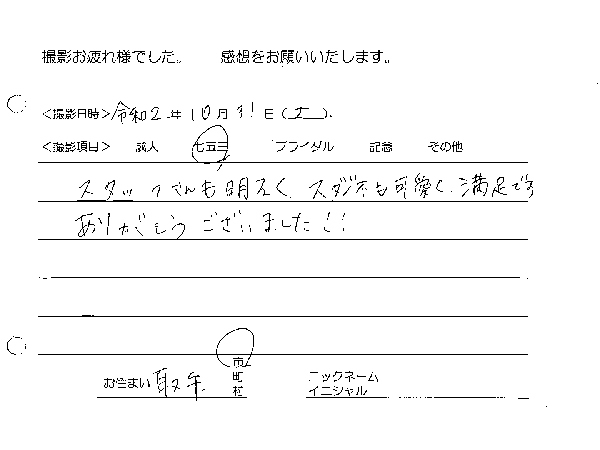 撮影お疲れ様でした。 感想をお願いいたします。
<撮影日時> 令和2年10月31日(土).
<撮影項目> 成人 七五三 ブライダル 記念 その他
スタッフさんも明るく、スタジオも可愛く、満足です
ありがとうございました!!
お住まい 取手 市 町 村 ニックネーム イニシャル